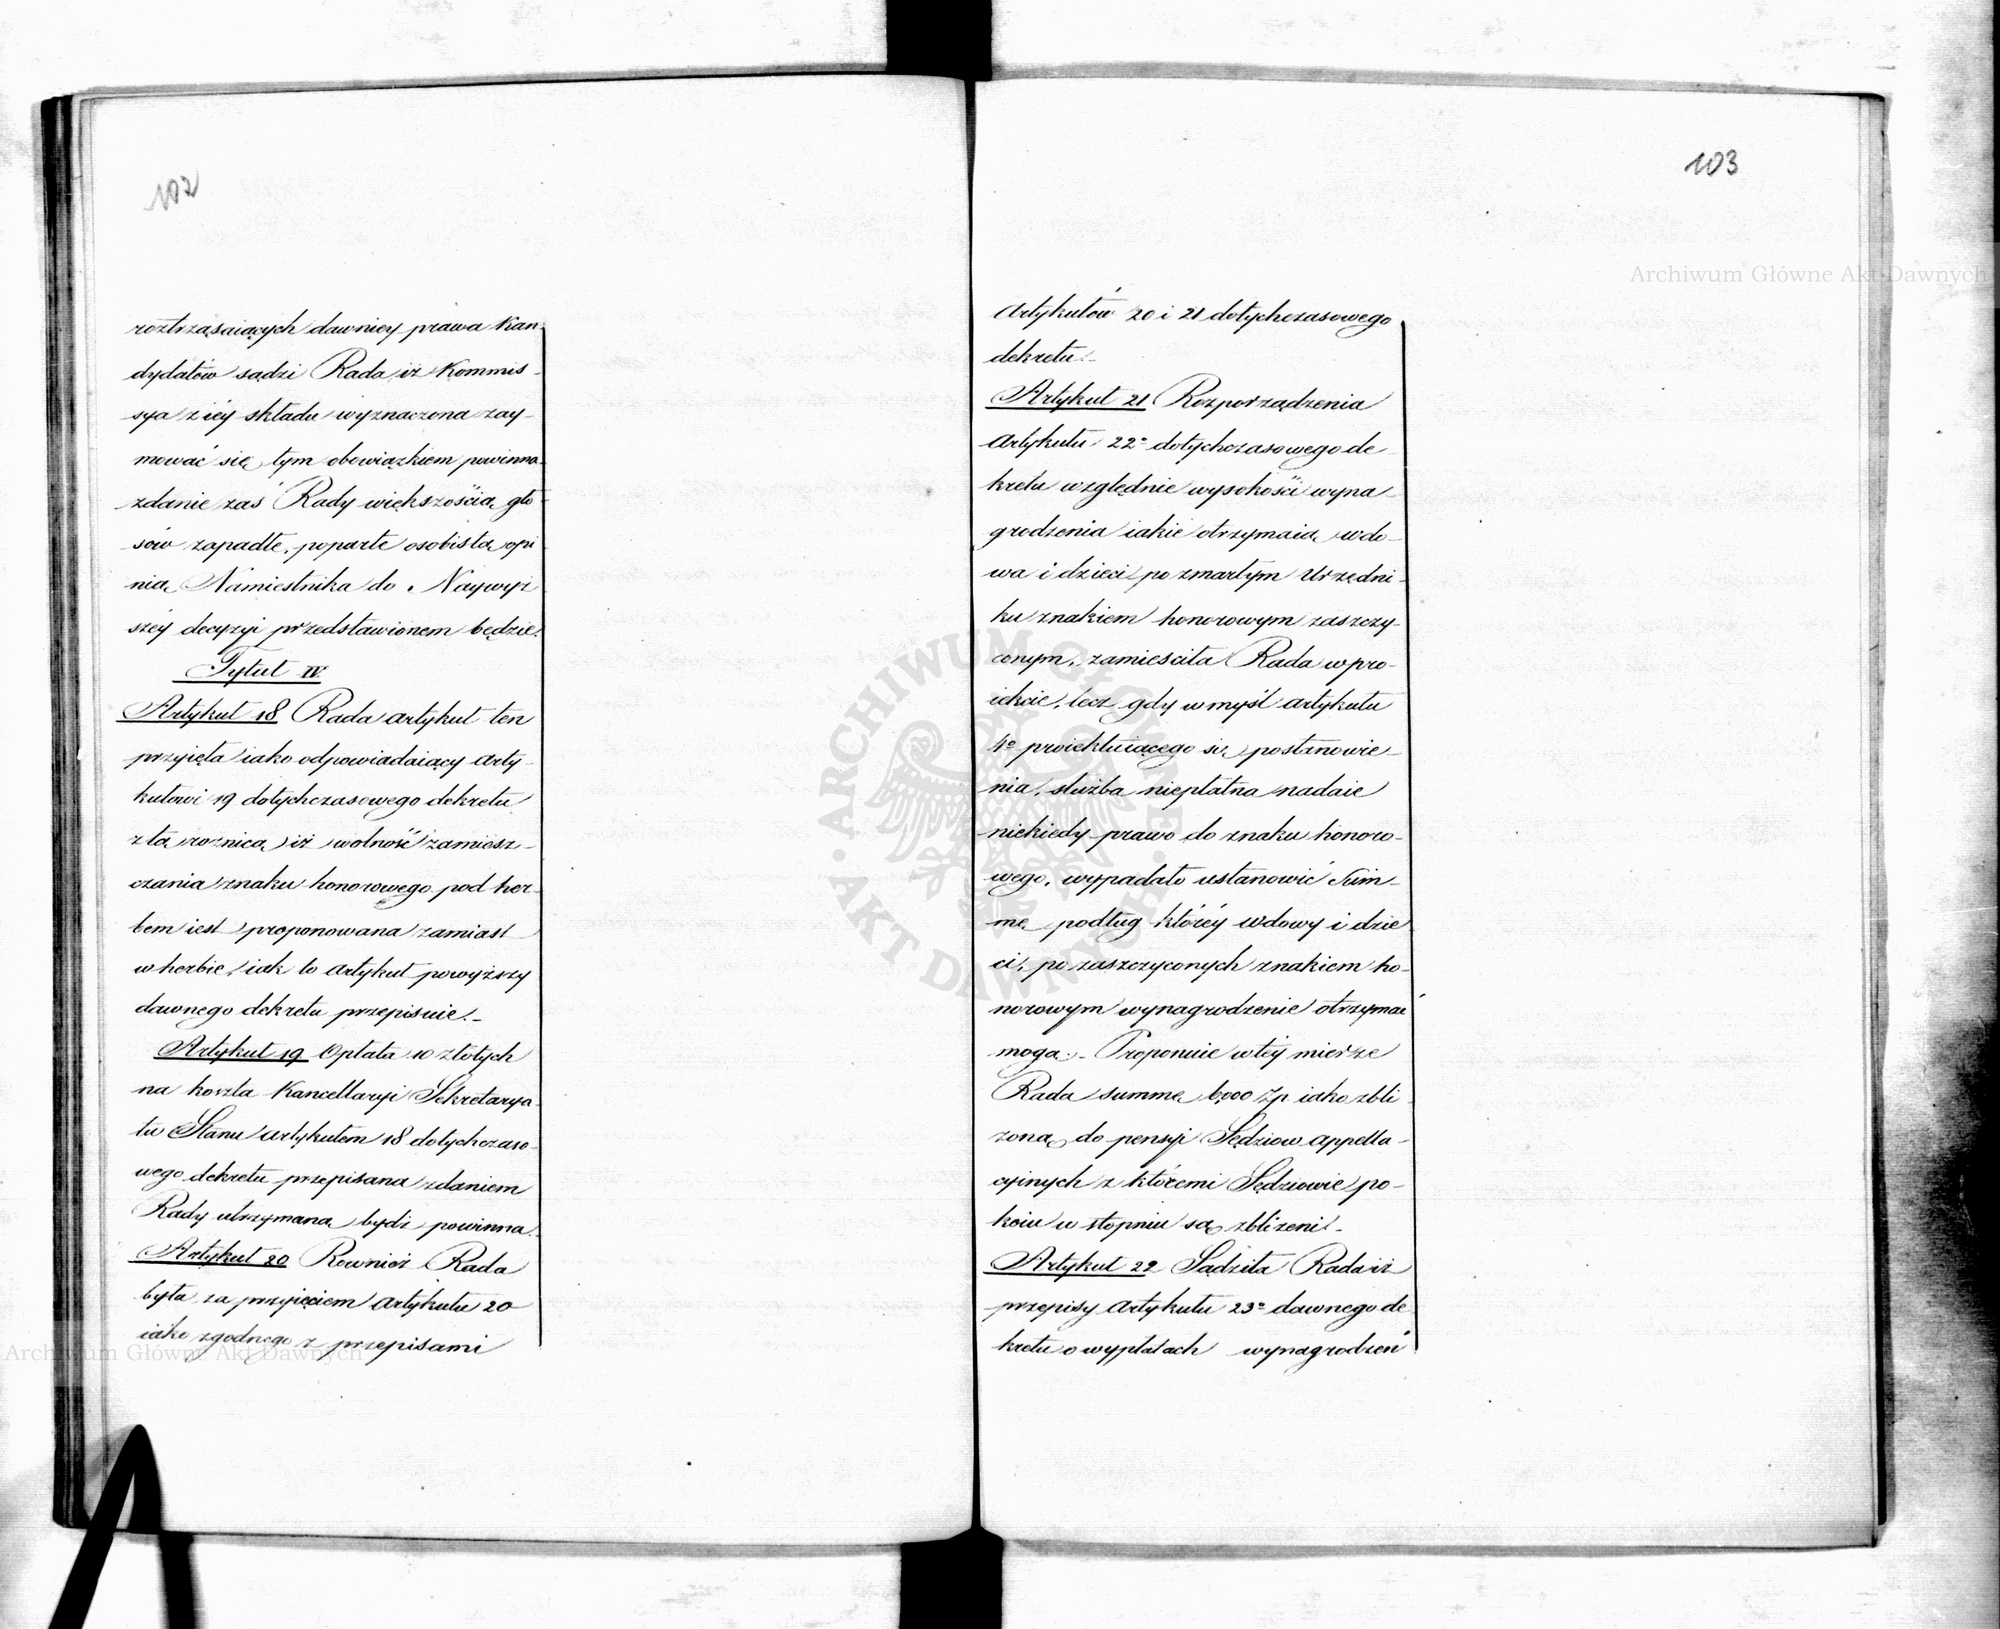 102
roztrząsaiących dawniey prawa Kan-
dydatów sądzi Rada iż Kommis-
sya z iéy składu wyznaczona zay-
mować się tym obowiązkiem powinna
zdanie zaś Rady większością gło-
sów zapadłe, poparte osobistą opi-
nią Namiestnika do Naywyż
széy decyzyi przedstawionem będzie.
Tytuł IV.
Artykuł 18 Rada artykuł ten
przyięła iako odpowiadaiący arty-
kułowi 19 dotychczasowego dekretu
z tą roznicą iż wolność zamiesz-
czania znaku honorowego pod her-
bem iest proponowana zamiast
w herbie, iak to artykuł powyższy
dawnego dekretu przepisuie.-
Artykuł 19 Opłata 10 złotych
na koszta Kancellaryi Sekretarya-
tu Stanu artykułem 18 dotychczaso-
wego dekretu przepisana zdaniem
Rady utrzymaną bydź powinna.
Artykuł 20 Rownież Rada
była za przyięciem artykułu 20
iako zgodnego z przepisami
103
Artykułów 20 i 21 dotychczasowego
dekretu.-
Artykuł 21 Rozporządzenia
artykułu 22° dotychczasowego de-
kretu względnie wysokości wyna-
grodzenia iakie otrzymaią wdo-
wa i dzieci po zmarłym Urzędni-
ku znakiem honorowym zaszczy-
conym, zamieściła Rada w pro-
iekcie, lecz gdy w myśl artykułu
4° proiektuiącego się postanowie-
nia, służba niepłatna nadaie
niekiedy prawo do znaku honoro-
wego, wypadało ustanowić Sum-
mę podług któréy wdowy i dzie
ci, po zaszczyconych znakiem ho-
norowym wynagrodzenie otrzymać
mogą.- Proponuie w téy mierze
Rada summę 6,000 Zp iako zbli-
żoną do pensyi Sędziow appella-
cyinych z któremi Sędziowie po-
koiu w stopniu są zbliżeni.-
Artykuł 22 Sądziła Rada iż
przepisy artykułu 23° dawnego de
kretu o wypłatach wynagrodzeń
Archiwum Główne Akt Dawnych
Archiwum Główne Akt Dawnych
ARCHIWUM GŁÓWNE · AKT DAWNYCH ·